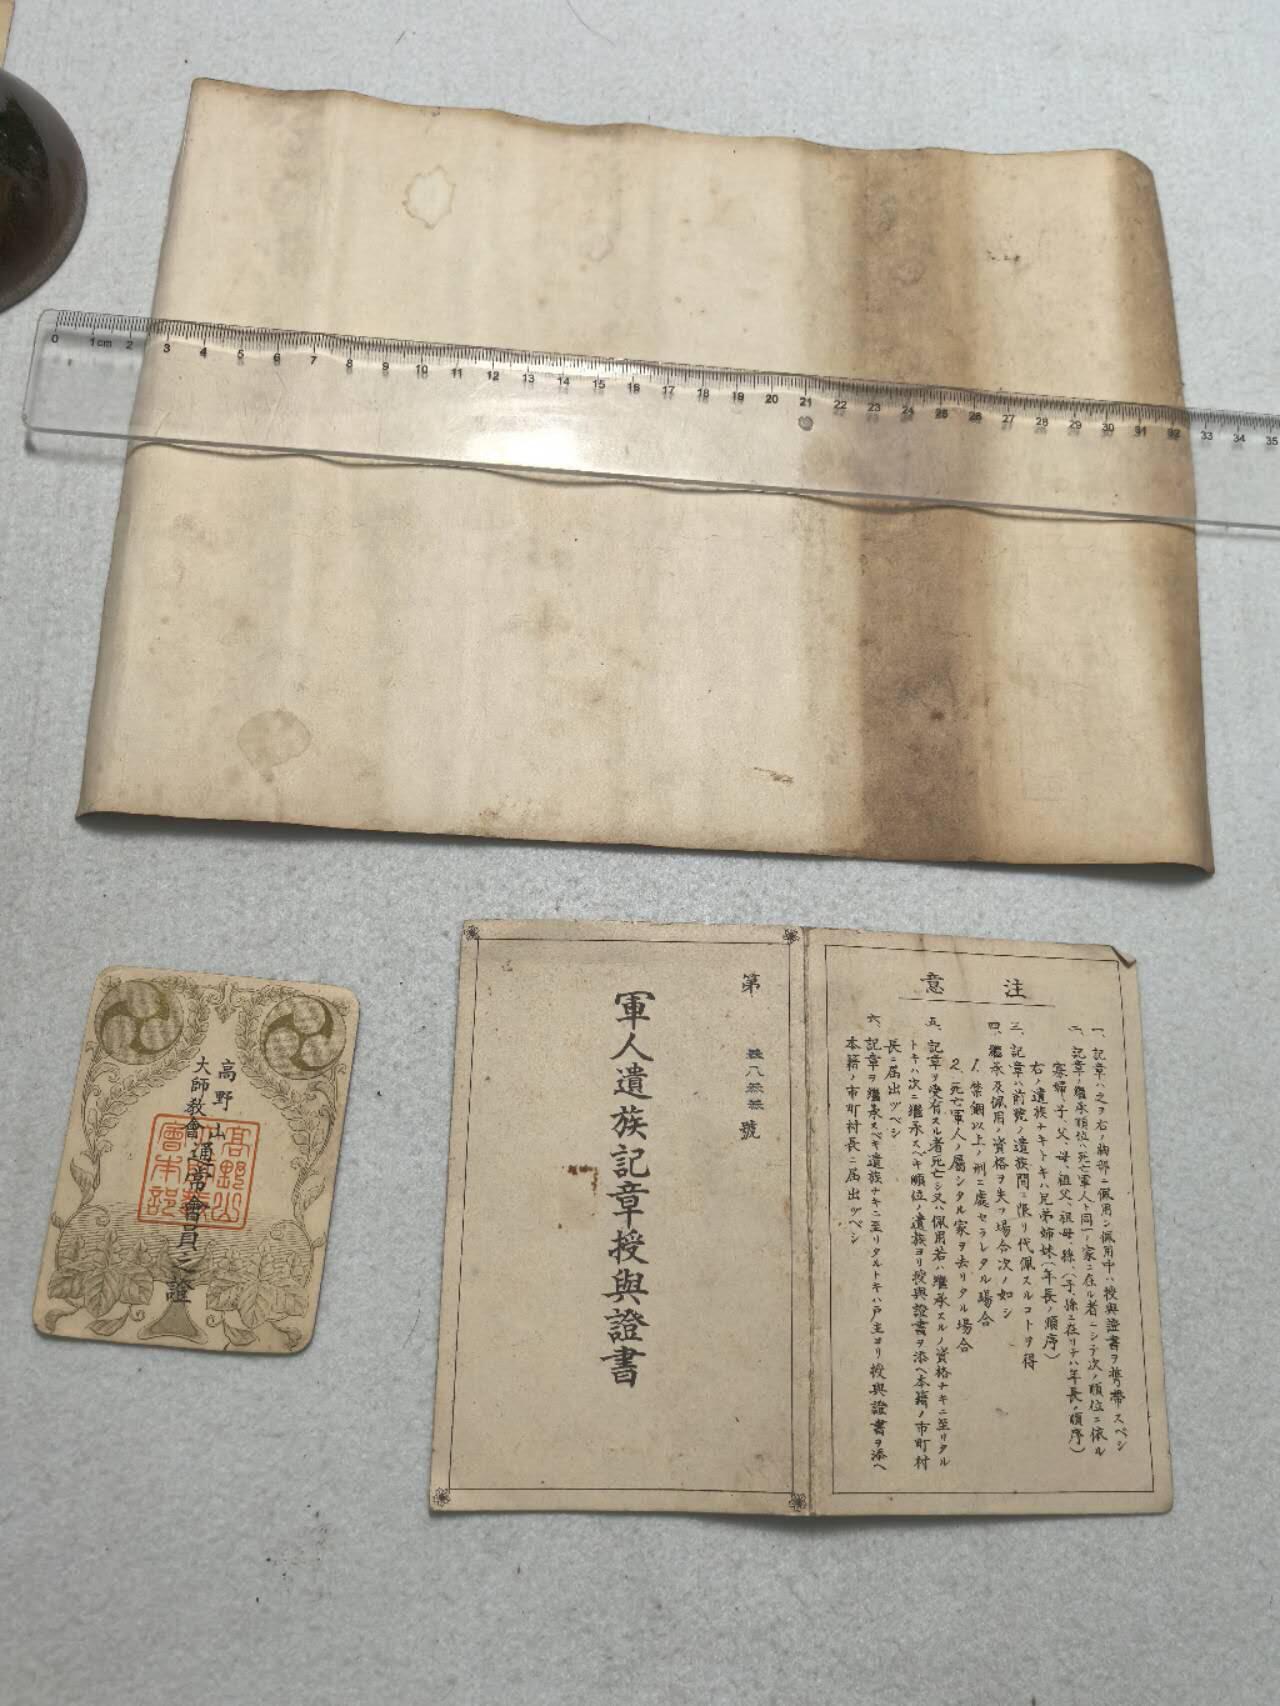 0 1cm 2 3 4 5 6 7 8 9 10 11 12 13 14 15 16 17 18 19 20 21 22 23 24 25 26 27 28 29 30 31 32 33 34 35
高野山
大師教會通常會員之證
高野山
會本部
注意
一、記章ハ之ヲ右ノ胸部ニ佩用シ佩用中ハ授與證書ヲ携帶スベシ
二、記章ノ繼承順位ハ死亡軍人ト同一ノ家ニ在ル者ニシテ次ノ順位ニ依ル
寡婦、子、父、母、祖父、祖母、孫、(子孫ニ在リテハ年長ノ順序)
右ノ遺族ナキトキハ兄弟姉妹(年長ノ順序)
三、記章ハ前號ノ遺族間ニ限リ代佩スルコトヲ得
四、繼承及佩用ノ資格ヲ失フ場合次ノ如シ
1、禁錮以上ノ刑ニ處セラレタル場合
2、死亡軍人ノ屬シタル家ヲ去リタル場合
五、記章ヲ受有スル者死亡シ又ハ佩用若ハ繼承スルノ資格ナキニ至リタル
トキハ次ニ繼承スベキ順位ノ遺族ヨリ授與證書ヲ添ヘ本籍ノ市町村
長ニ届出ヅベシ
六、記章ヲ繼承スベキ遺族ナキニ至リタルトキハ戸主ヨリ授與證書ヲ添ヘ
本籍ノ市町村長ニ届出ヅベシ
第 號
軍人遺族記章授與證書